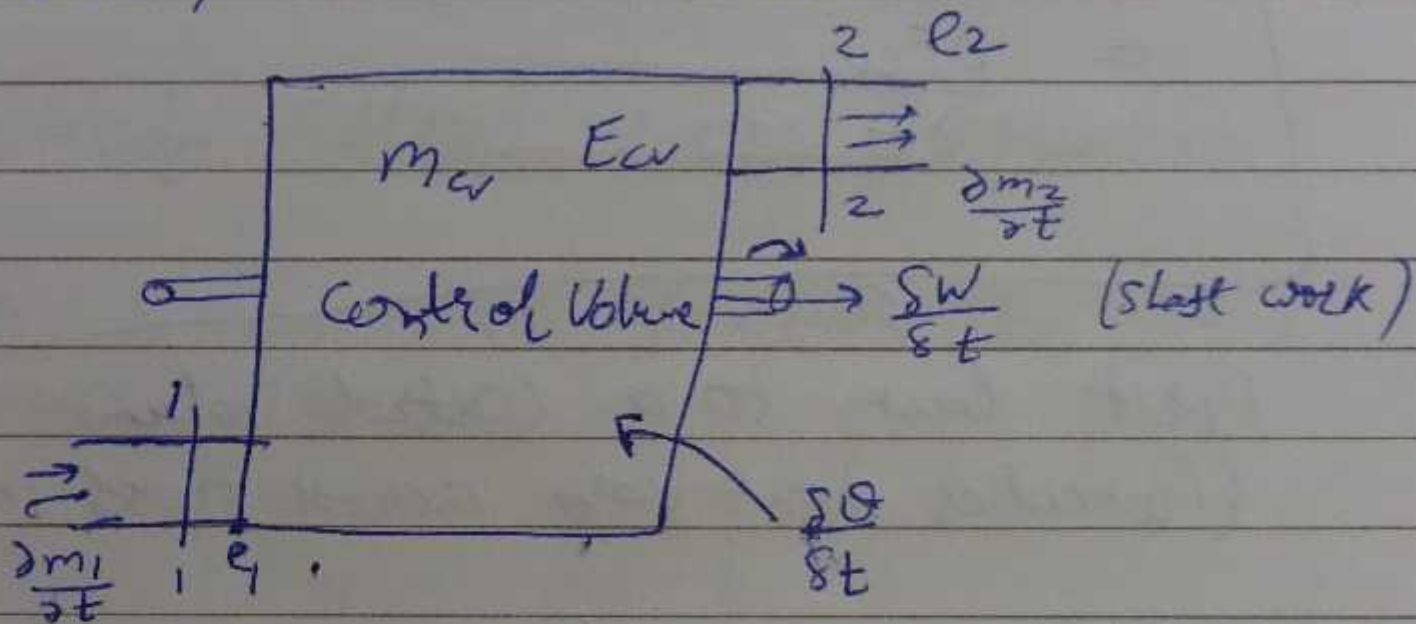 2 e2
mcv Ecv
2 ∂m2/∂t
Control Volume δW/δt (Shaft work)
1
δQ/δt
∂m1/∂t 1 e1